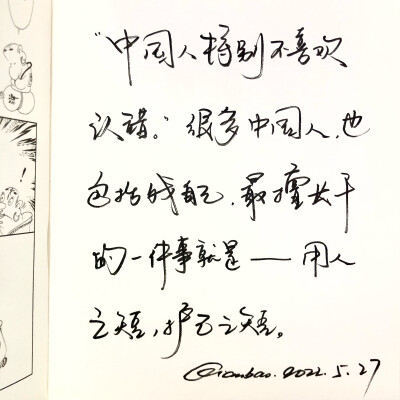 “中国人特别不喜欢
认错。”很多中国人，也
包括我自己，最擅长干
的一件事就是——用人
之短，护己之短。
Qianbao. 2022. 5. 27